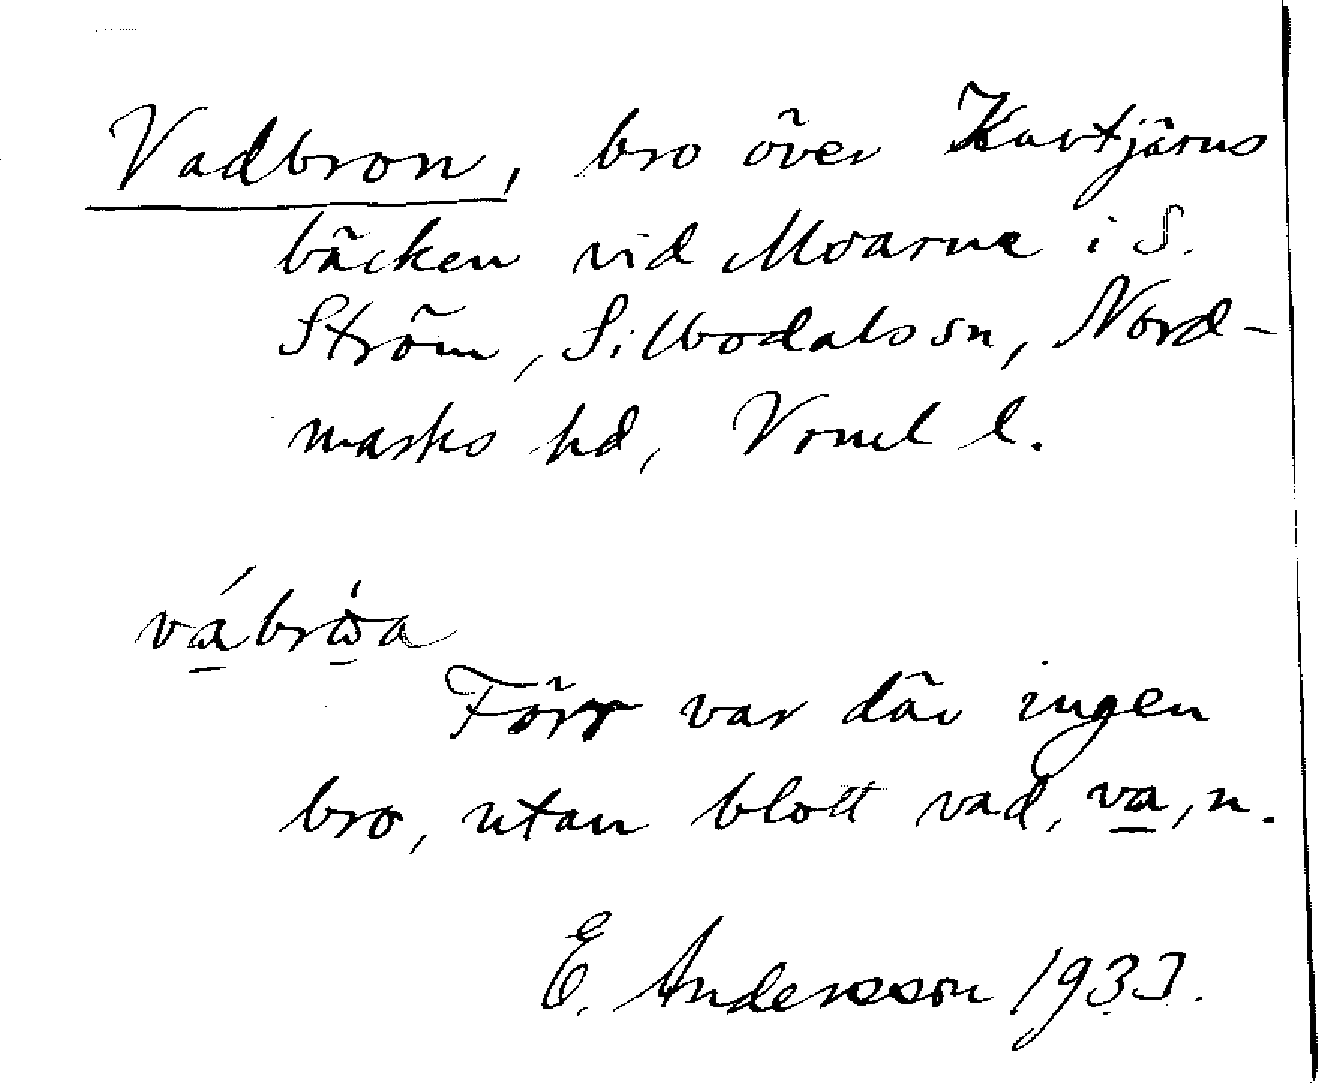 Vadbron, bro över Kavtjärns
bäcken vid Moarne i S.
Ström, Silbodals sn, Nord-
marks hd, Vrml l.
vábrὼa
Förr var där ingen
bro, utan blott vad, va, n.
E. Andersson 1933.